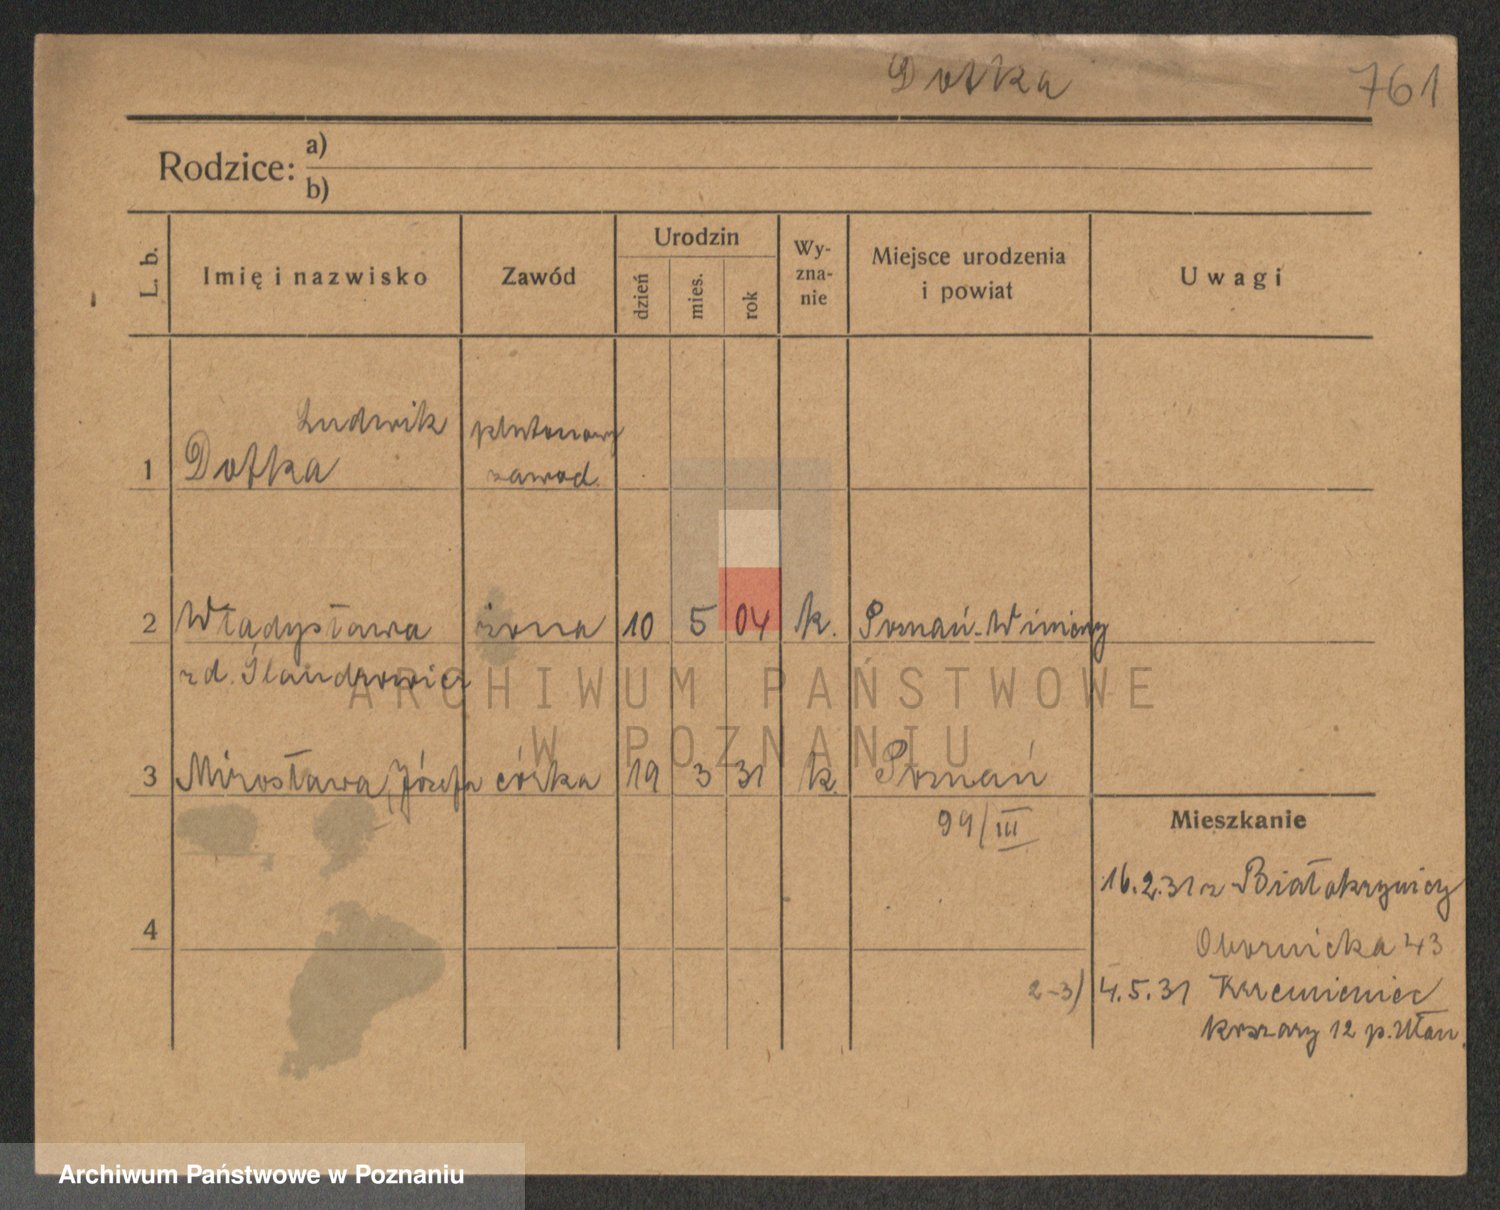 Dotka 761
Rodzice: a)
b)
L. b. Imię i nazwisko Zawód Urodzin dzień mies. rok Wy-zna-nie Miejsce urodzenia i powiat Uwagi
Ludwik plutonowy
1 Dotka zawod.
2 Władysława żona 10 5 04 k. Poznań-Winiary
zd.
ARCHIWUM PAŃSTWOWE
W POZNANIU
3 Mirosława, Józefa córka 19 3 31 k. Poznań
99/III
Mieszkanie
16.2.31 z Białokrynicy
4
Obornicka 43
2-3) 4.5.31 Krzemieniec
koszary 12 p. Ułan.
Archiwum Państwowe w Poznaniu